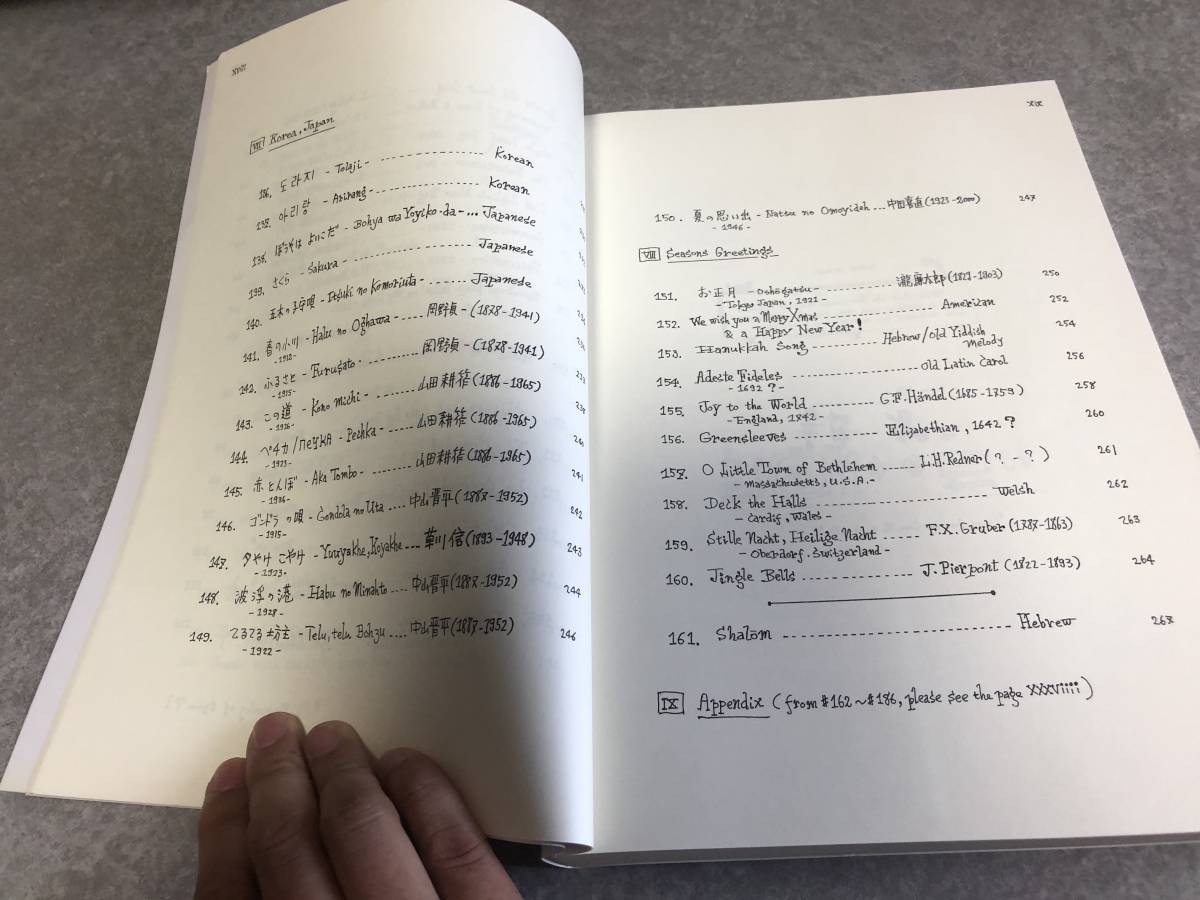 xviii
VII Korea, Japan
136. 도라지 - Tolaji - Korean
137. 아리랑 - Arirang - Korean
138. ぼうやは よいこだ - Bohya wa Yoyiko-da - ... Japanese
139. さくら - Sakura - Japanese
140. 五木の子守唄 - Itsuki no Komoriuta - Japanese
141. 春の小川 - Halu no Oghawa - 岡野貞一 (1878-1941)
- 1912 -
142. ふるさと - Furusato - 岡野貞一 (1878-1941)
- 1915 -
143. この道 - Kono Michi - 山田耕筰 (1886-1965)
- 1926 -
144. ペチカ / ПеЧКА - Pechka - 山田耕筰 (1886-1965)
- 1923 -
145. 赤とんぼ - Aka Tombo - 山田耕筰 (1886-1965) 241
146. ゴンドラの唄 - Gondola no Uta 中山晋平 (1887-1952) 242
- 1915 -
147. 夕やけ こやけ - Yuuyakhe, Koyakhe ... 草川信 (1893-1948) 243
- 1923 -
148. 波浮の港 - Habu no Minahto .... 中山晋平 (1887-1952) 244
- 1928 -
149. てるてる坊主 - Telu, telu Bohzu .... 中山晋平 (1887-1952) 246
- 1922 -
xix
150. 夏の思い出 - Natsu no Omoyideh ... 中田喜直 (1923-2000) 247
- 1946 -
VIII Seasons Greetings
151. お正月 - Oshōgatsu - 瀧廉太郎 (1879-1903) 250
- Tokyo Japan, 1921 -
152. We wish you a Merry Xmas American 252
& a Happy New Year!
153. Hanukkah Song Hebrew/Old Yiddish 254
Melody
154. Adeste Fideles Old Latin Carol 256
- 1692 ? -
155. Joy to the World G.F. Händel (1685-1759) 258
- England, 1742 -
156. Greensleeves Elizabethian, 1642 ? 260
157. O Little Town of Bethlehem L.H. Redner ( ? - ? ) 261
- Massachusetts, U.S.A. -
158. Deck the Halls Welsh 262
- Cardif, Wales -
159. Stille Nacht, Heilige Nacht F.X. Gruber (1787-1863) 263
- Oberdorf. Switzerland -
160. Jingle Bells J. Pierpont (1822-1893) 264
161. Shalōm Hebrew 267
IX Appendix (from #162 ~ #186, please see the page xxxviiii)